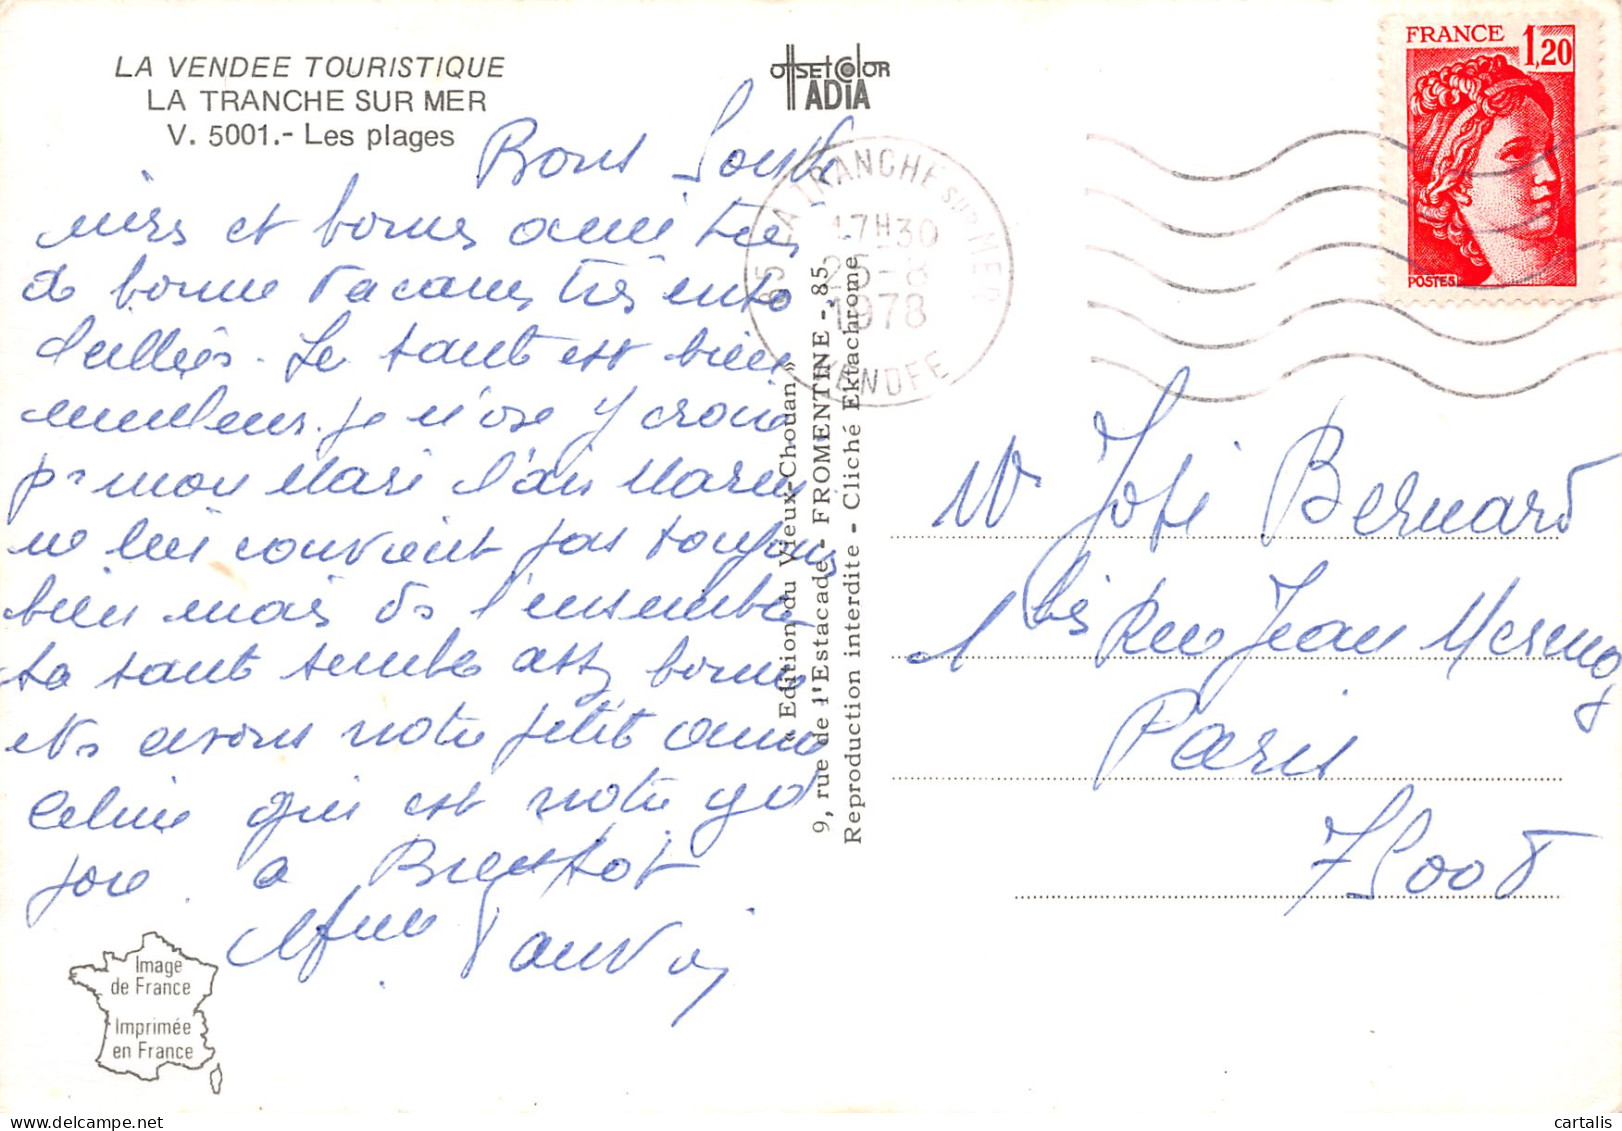 LA VENDEE TOURISTIQUE
LA TRANCHE SUR MER
V. 5001.- Les plages
OFFSET COLOR
ADIA
FRANCE 1,20
POSTES
85 LA TRANCHE SUR MER
17H30
1978
VENDEE
Bons Souve
nirs et bonnes amitiés
de bonne vacances très enso
leillées. Le santé est bien
meilleur. je n'ose y croire
pr mon Mari l'air Marin
ne lui convient pas toujours
bien mais ds l'ensemble
sa santé semble assez bonne
et ns avons notre petit
Céline qui est notre gd
joie. a Bientot
« Edition du Vieux-Chouan »
9, rue de l'Estacade - FROMENTINE - 85
Reproduction interdite - Cliché Ektachrome
Mr José Bernard
1 bis Rue Jean Mermoz
Paris
75008
Image
de France
Imprimée
en France
cartalis
delcampe.net